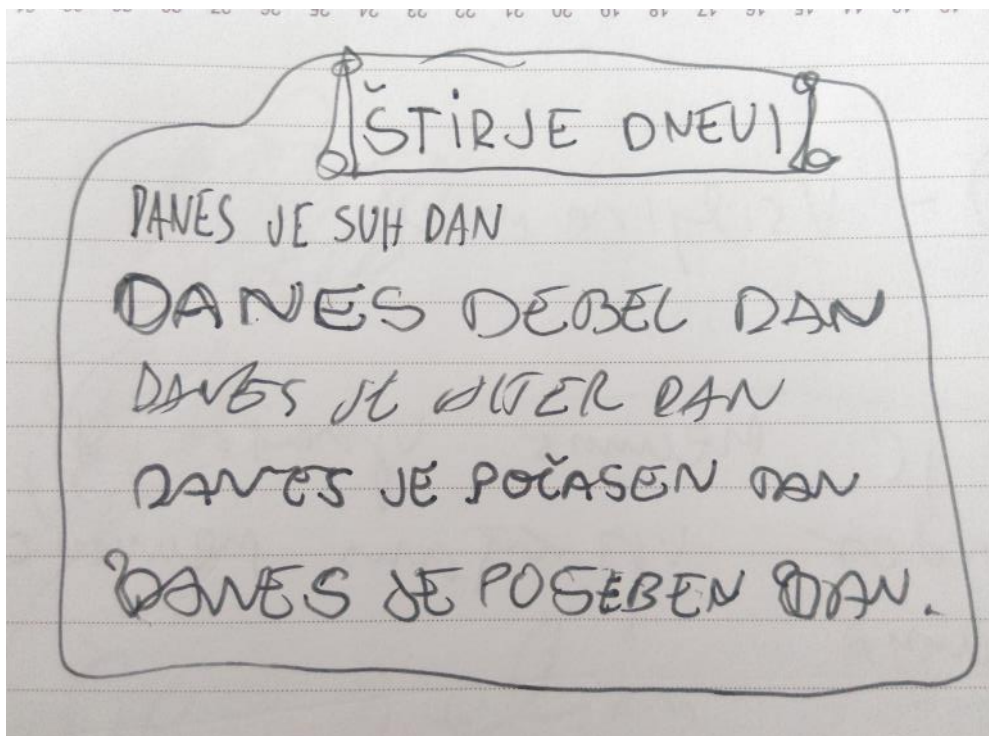 ŠTIRJE DNEVI
DANES JE SUH DAN
DANES DEBEL DAN
DANES JE HITER DAN
DANES JE POČASEN DAN
DANES JE POSEBEN DAN.